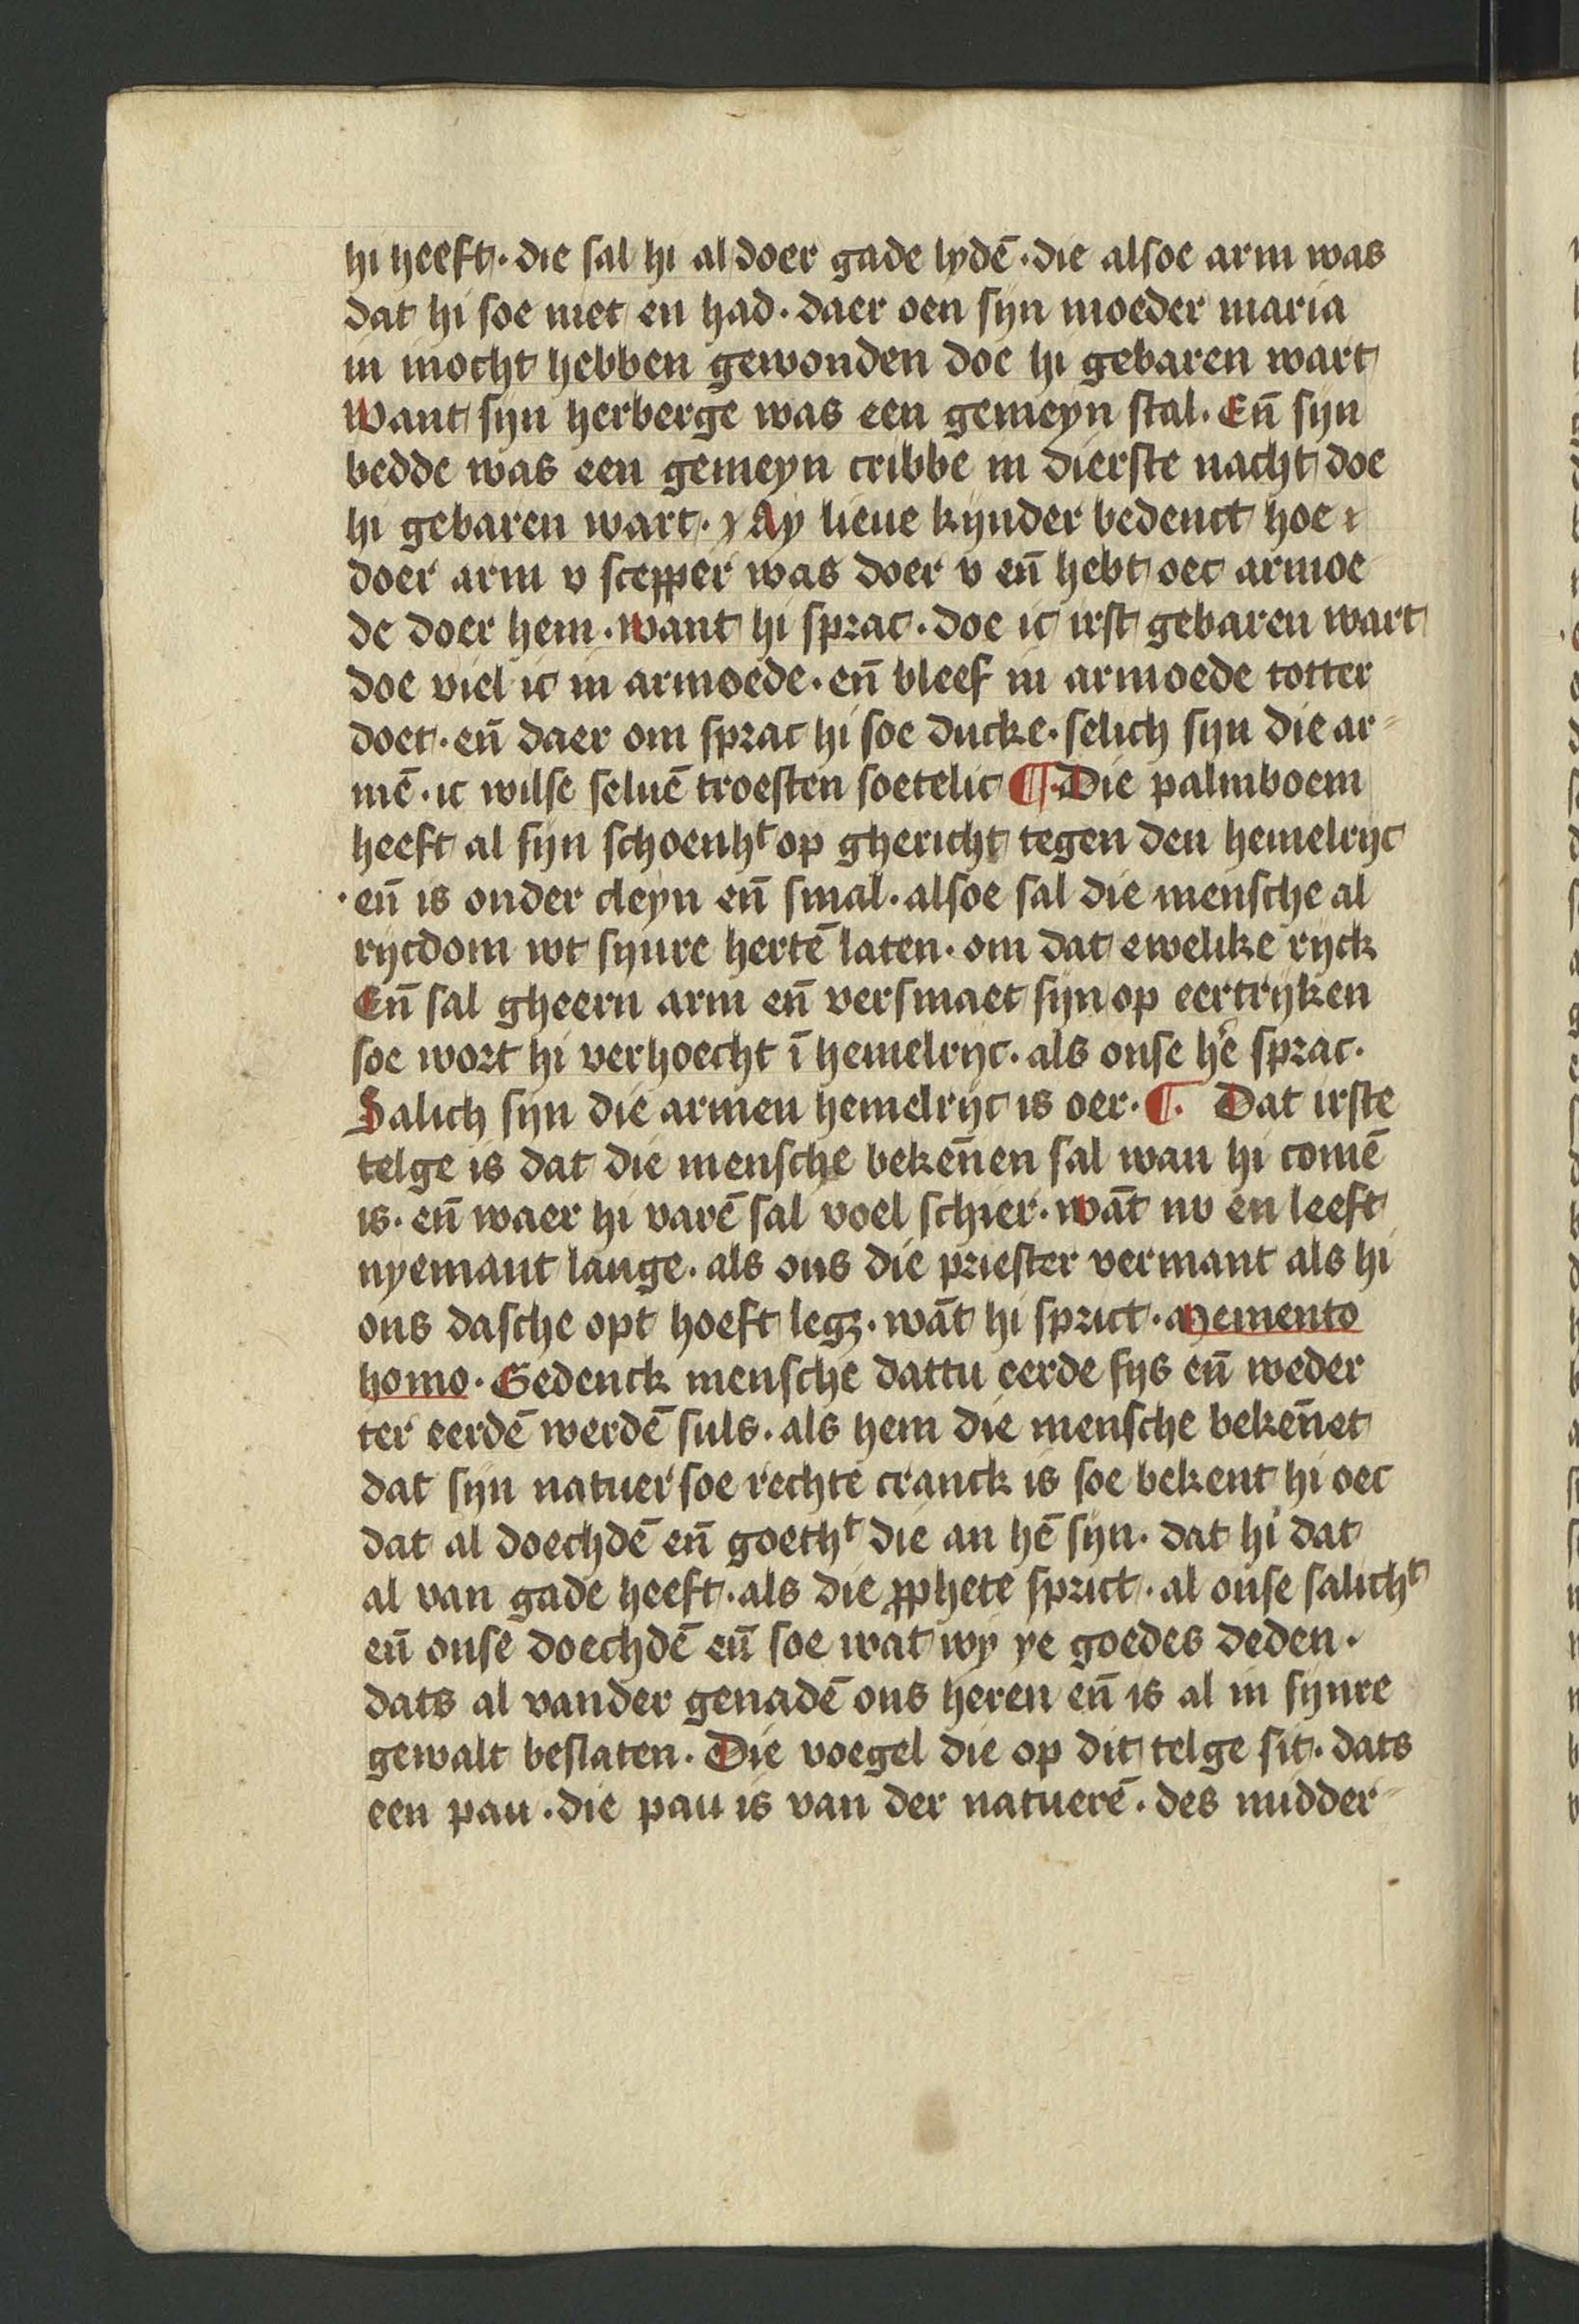 hi heeft · die sal hi al doer gade lydē · die alsoe arm was
dat hi soe niet en had · daer oen syn moeder maria
in mocht hebben gewonden doe hi gebaren wart
Want syn herberge was een gemeyn stal · En̄ syn
bedde was een gemeyn cribbe in dierste nacht doe
hi gebaren wart · Ay lieue kynder bedenct hoe
doer arm v scepper was doer v en̄ hebt oec armoe
de doer hem · want hi sprac · doe ic irst gebaren wart
doe viel ic in armoede · en̄ bleef in armoede totter
doet · en̄ daer om sprac hi soe ducke · selich syn die ar⸗
mē · ic wilse seluē troesten soetelic ¶ · Die palmboem
heeft al syn schoenhᵗ op ghericht tegen den hemelryc
· en̄ is onder cleyn en̄ smal · alsoe sal die mensche al
rycdom wt synre hertē laten · om dat ewelike ryck
En̄ sal gheern arm en̄ versmaet syn op eertryken
soe wort hi verhoecht ī hemelryc · als onse hē sprac ·
Salich syn die armen hemelryc is oer · ¶ · Dat irste
telge is dat die mensche beken̄en sal wan hi comē
is · en̄ waer hi varē sal voel schier · wāt nv en leeft
nyemant lange · als ons die priester vermant als hi
ons dasche opt hoeft legʒ · wāt hi sprict · Memento
homo · Gedenck mensche dattu eerde sys en̄ weder
ter eerdē werdē suls · als hem die mensche beken̄et
dat syn natuer soe rechte cranck is soe bekent hi oec
dat al doechdē en̄ goethᵗ die an hē syn · dat hi dat
al van gade heeft · als die ꝓphete sprict · al onse salichᵗ
en̄ onse doechdē en̄ soe wat wy ye goedes deden ·
dats al vander genadē ons heren en̄ is al in synre
gewalt beslaten · Die voegel die op dit telge sit · dats
een pau · die pau is van der natuerē · des nudder⸗